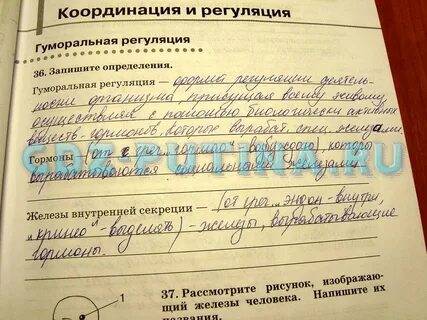 Координация и регуляция
Гуморальная регуляция
36. Запишите определения.
Гуморальная регуляция — форма регуляции деятель-
ности организма, присущая всему живому,
осуществляе с помощью биологически активных
веществ - гормонов, которые вырабат. спец. железами.
Гормоны — (от греч. "гормао" - возбужаю), которы
вырабатываются специальными железами
GDZ-PUTINA.RU
Железы внутренней секреции — (от греч. "эндон - внутри,
"крино" - выделять) - железы, вырабатывающие
гормоны.
37. Рассмотрите рисунок, изображаю-
щий железы человека. Напишите их
названия.
1